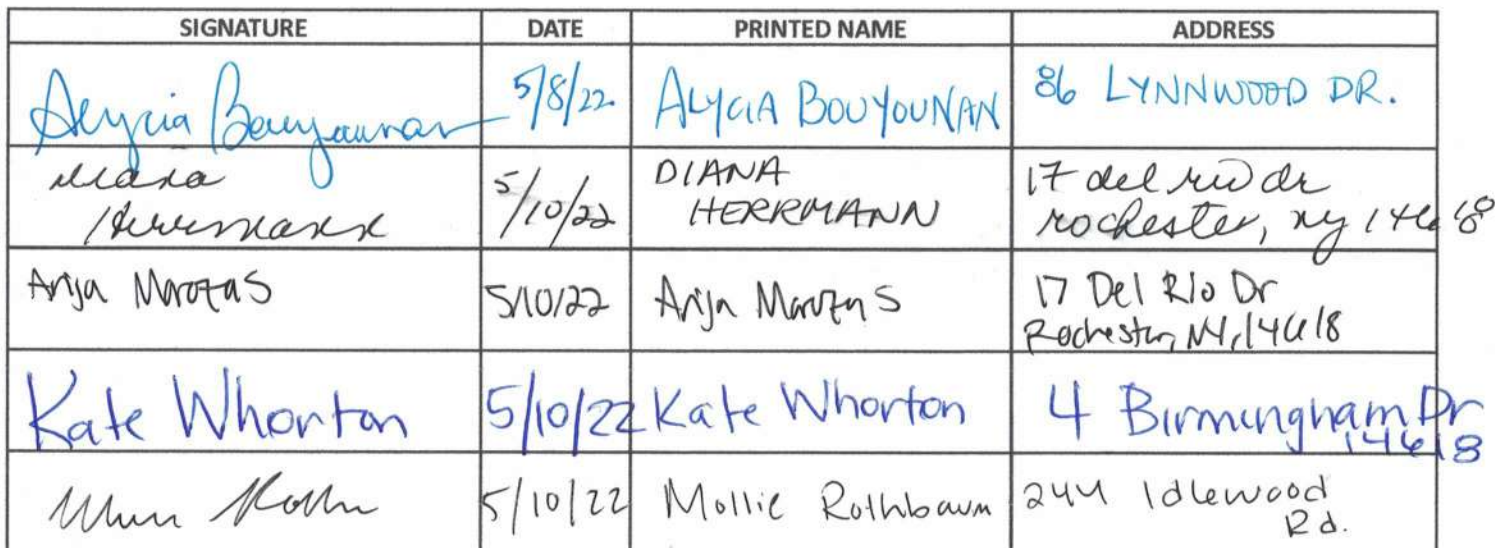 SIGNATURE DATE PRINTED NAME ADDRESS
Alycia Bouyounan 5/8/22 ALYCIA BOUYOUNAN 86 LYNNWOOD DR.
Diana Herrmann 5/10/22 DIANA HERRMANN 17 del rio dr
rochester, ny 14618
Arija Marozas 5/10/22 Arija Marozas 17 Del Rio Dr
Rochester, NY, 14618
Kate Whorton 5/10/22 Kate Whorton 4 Birmingham Dr
14618
5/10/22 Mollie Rothbaum 244 Idlewood
Rd.